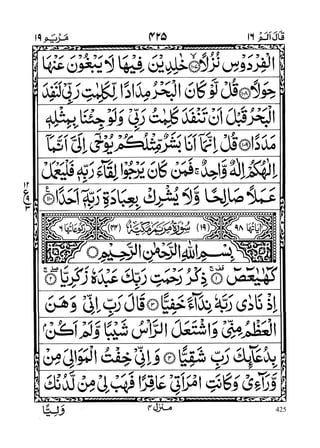 قَالَ اَلَمْ ١٦ ٤٢٥ مَرْيَم ١٩
الْفِرْدَوْسِ نُزُلًا ۙ‏﴿۱۰۷﴾ خٰلِدِيْنَ فِيْهَا لَا يَبْغُوْنَ عَنْهَا
حِوَلًا ﴿۱۰۸﴾ قُلْ لَّوْ كَانَ الْبَحْرُ مِدَادًا لِّكَلِمٰتِ رَبِّيْ لَنَفِدَ
الْبَحْرُ قَبْلَ اَنْ تَنْفَدَ كَلِمٰتُ رَبِّيْ وَلَوْ جِئْنَا بِمِثْلِهٖ
مَدَدًا ﴿۱۰۹﴾ قُلْ اِنَّمَاۤ اَنَا بَشَرٌ مِّثْلُكُمْ يُوْحٰۤى اِلَيَّ اَنَّمَاۤ
اِلٰهُكُمْ اِلٰهٌ وَّاحِدٌ ۚ فَمَنْ كَانَ يَرْجُوْا لِقَآءَ رَبِّهٖ فَلْيَعْمَلْ
عَمَلًا صَالِحًا وَّلَا يُشْرِكْ بِعِبَادَةِ رَبِّهٖۤ اَحَدًا ﴿۱۱۰﴾
اٰيَاتُهَا ٩٨ (١٩) سُوْرَةُ مَرْيَمَ مَكِّيَّةٌ (٤٤) رُكُوْعَاتُهَا ٦
بِسْمِ اللّٰهِ الرَّحْمٰنِ الرَّحِيْمِ
كٓهٰيٰعٓصٓ ﴿۱﴾ ذِكْرُ رَحْمَتِ رَبِّكَ عَبْدَهٗ زَكَرِيَّا ﴿۲﴾
اِذْ نَادٰى رَبَّهٗ نِدَآءً خَفِيًّا ﴿۳﴾ قَالَ رَبِّ اِنِّيْ وَهَنَ
الْعَظْمُ مِنِّيْ وَاشْتَعَلَ الرَّاْسُ شَيْبًا وَّلَمْ اَكُنْۢ
بِدُعَآئِكَ رَبِّ شَقِيًّا ﴿۴﴾ وَاِنِّيْ خِفْتُ الْمَوَالِيَ مِنْ
وَّرَآءِيْ وَكَانَتِ امْرَاَتِيْ عَاقِرًا فَهَبْ لِيْ مِنْ لَّدُنْكَ
وَلِيًّا مَنْزِل ٤ 425